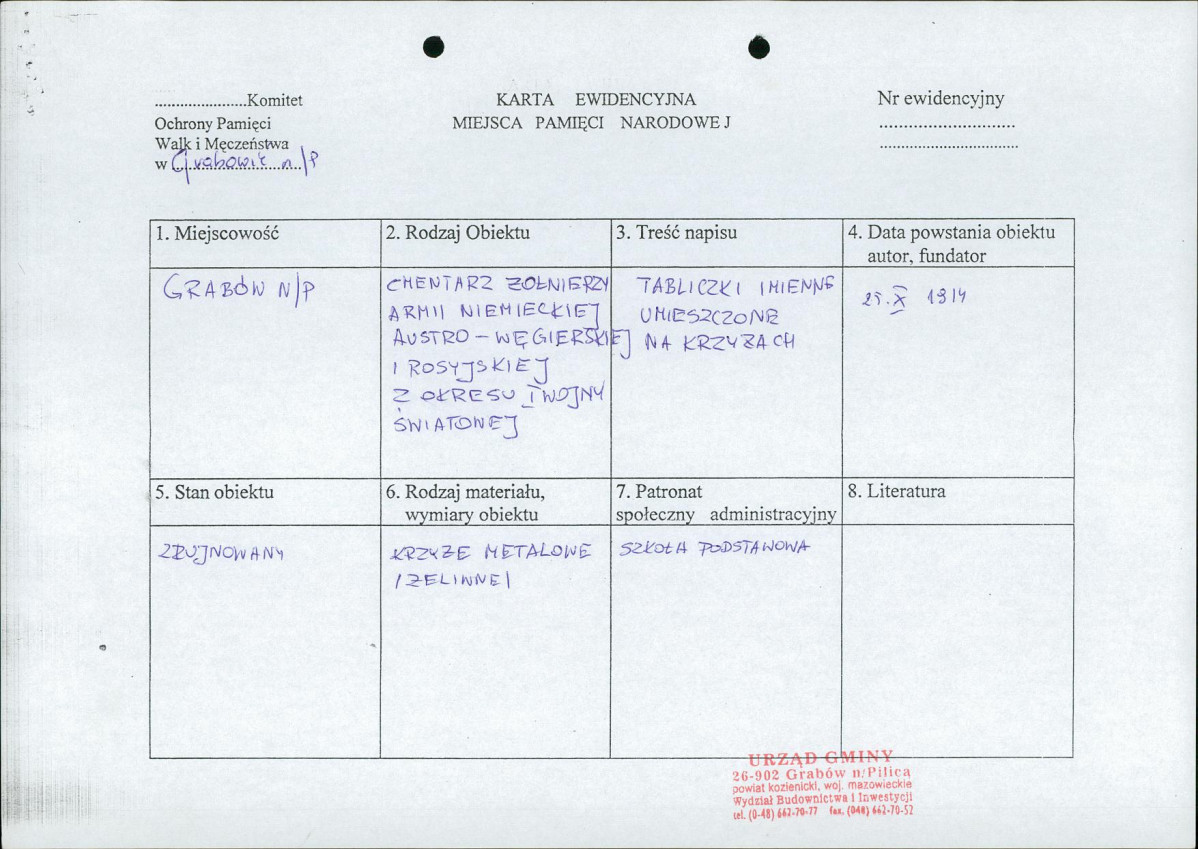 ......................Komitet
Ochrony Pamięci
Walk i Męczeństwa
w Grabowie n/P
KARTA EWIDENCYJNA
MIEJSCA PAMIĘCI NARODOWEJ
Nr ewidencyjny
..............................
..............................
1. Miejscowość
GRABÓW N/P
2. Rodzaj Obiektu
CMENTARZ ŻOŁNIERZY
ARMII NIEMIECKIEJ
AUSTRO - WĘGIERSKIEJ
I ROSYJSKIEJ
Z OKRESU I WOJNY
ŚWIATOWEJ
3. Treść napisu
TABLICZKI IMIENNE
UMIESZCZONE
NA KRZYŻACH
4. Data powstania obiektu
autor, fundator
25.X 1914
5. Stan obiektu
ZRUJNOWANY
6. Rodzaj materiału,
wymiary obiektu
KRZYŻE METALOWE
/ŻELIWNE/
7. Patronat
społeczny administracyjny
SZKOŁA PODSTAWOWA
8. Literatura
URZĄD GMINY
26-902 Grabów n/Pilicą
powiat kozienicki, woj. mazowieckie
Wydział Budownictwa i Inwestycji
tel. (0-48) 662-70-77 fax. (048) 662-70-52